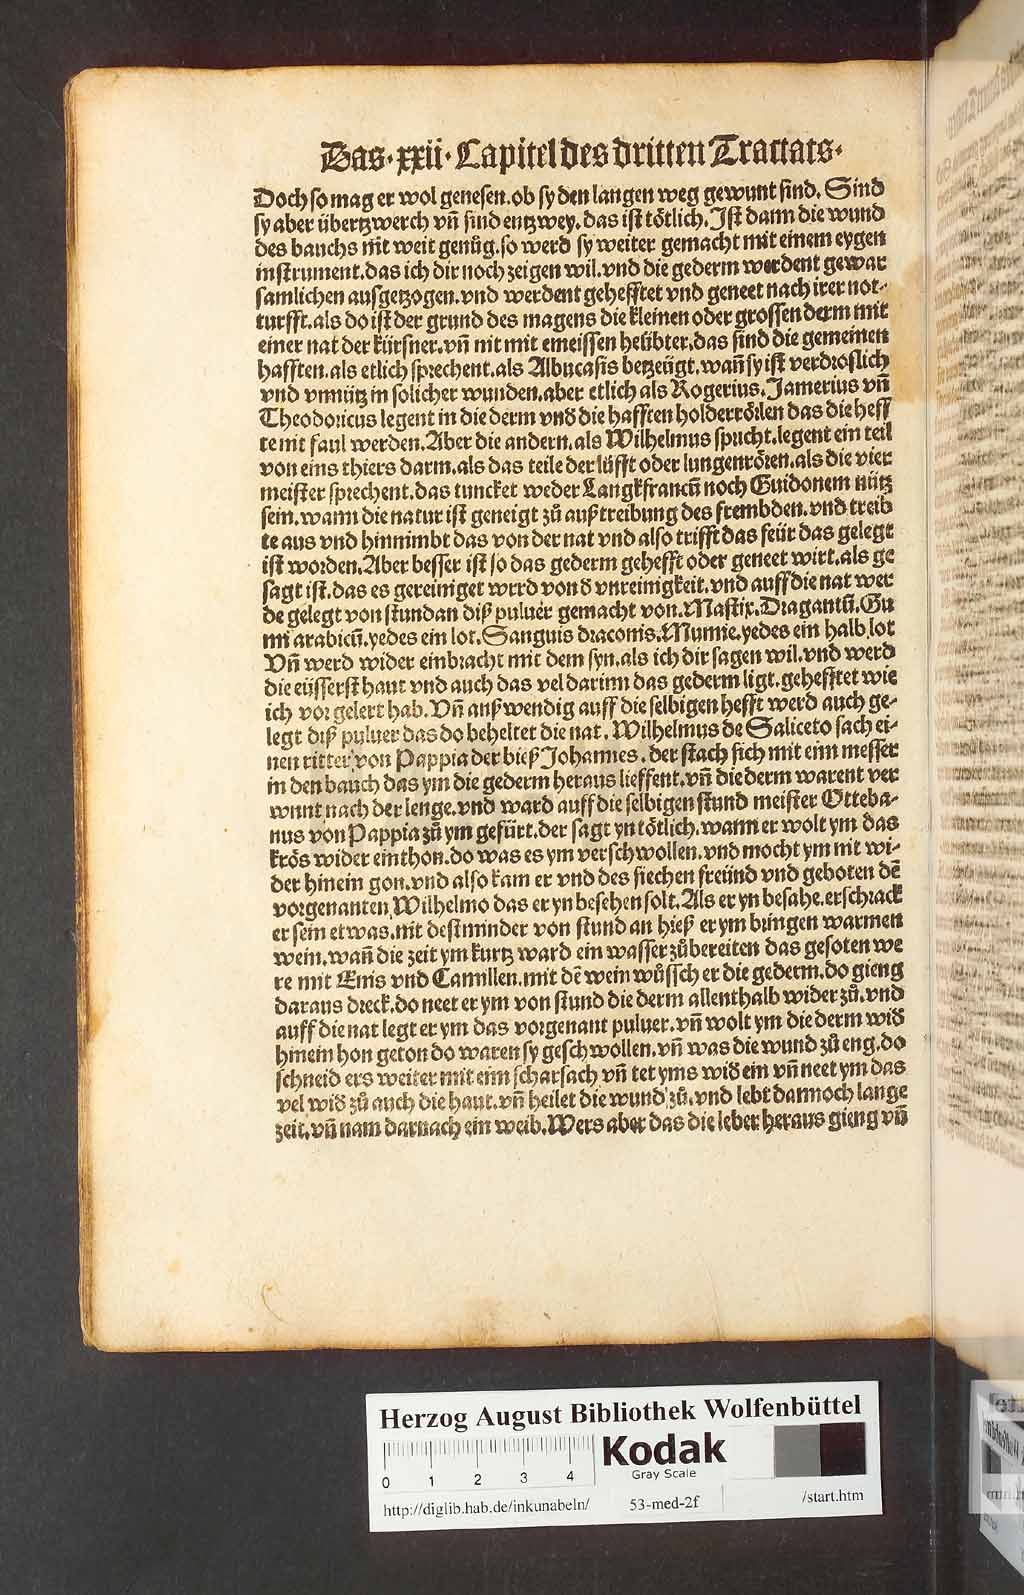 Das·xxii·Capitel des dritten Tractats·
Doch so mag er wol genesen.ob sy den langen weg gewunt sind. Sind
sy aber übertzwerch vñ sind entzwey.das ist tötlich.Ist dann die wund
des bauchs nit weit genůg.so werd sy weiter gemacht mit einem eygen
instrument.das ich dir noch zeigen wil.vnd die gederm werdent gewar
samlichen ausgetzogen.vnd werdent gehefftet vnd geneet nach irer not-
turfft.als do ist der grund des magens die kleinen oder grossen derm mit
einer nat der kürsner.vñ nit mit emeissen heübter.das sind die gemeinen
hafften.als etlich sprechent.als Albucasis betzeügt.wañ sy ist verdroslich
vnd vnnütz in solicher wunden.aber etlich als Rogerius.Jamerius vñ
Theodoricus legent in die derm vnd die hafften holderrörlen das die heff
te nit faul werden.Aber die andern.als Wilhelmus spricht.legent ein teil
von eins thiers darm.als das teile der lüfft oder lungenrören.als die vier
meister sprechent.das tuncket weder Langkfrancũ noch Guidonem nütz
sein.wann die natur ist geneigt zů außtreibung des frembden.vnd treib
te aus vnd hinnimbt das von der nat vnd also trifft das feür das gelegt
ist worden.Aber besser ist so das gederm gehefft oder geneet wirt.als ge
sagt ist.das es gereiniget werd von d̕ vnreinigkeit.vnd auff die nat wer
de gelegt von stundan diß puluer gemacht von.Mastix.Dragantũ.Gu
mi arabicũ.yedes ein lot.Sanguis draconis.Mumie.yedes ein halb lot
Vñ werd wider einbracht mit dem syn.als ich dir sagen wil.vnd werd
die eüsserst haut vnd auch das vel darinn das gederm ligt.gehefftet wie
ich vor gelert hab.Vñ außwendig auff die selbigen hefft werd auch ge-
legt diß puluer das do beheltet die nat.Wilhelmus de Saliceto sach ei-
nen ritter von Pappia der hieß Johannes.der stach sich mit eim messer
in den bauch das ym die gederm heraus lieffent.vñ die derm warent ver
wunt nach der lenge.vnd ward auff die selbigen stund meister Otteba-
nus von Pappia zů ym gefürt.der sagt yn tötlich.wann er wolt ym das
krös wider einthon.do was es ym verschwollen.vnd mocht ym nit wi-
der hinein gon.vnd also kam er vnd des siechen freünd vnd geboten dẽ
vorgenanten Wilhelmo das er yn besehen solt.Als er yn besahe.erschrack
er sein etwas.nit destminder von stund an hieß er ym bringen warmen
wein.wañ die zeit ym kurtz ward ein wasser zůbereiten das gesoten we
re mit Enis vnd Camillen.mit dẽ wein wůsch er die gederm.do gieng
daraus dreck.do neet er ym von stund die derm allenthalb wider zů.vnd
auff die nat legt er ym das vorgenant puluer.vñ wolt ym die derm wid̕
hinein hon geton do waren sy geschwollen.vñ was die wund zů eng.do
schneid ers weiter mit eim scharsach vñ tet yms wid̕ ein vñ neet ym das
vel wid̕ zů auch die haut.vñ heilet die wund zů.vnd lebt dannoch lange
zeit.vñ nam darnach ein weib.Wers aber das die leber heraus gieng vñ
Herzog August Bibliothek Wolfenbüttel
0 1 2 3 4
Kodak
Gray Scale
http://diglib.hab.de/inkunabeln/ 53-med-2f /start.htm